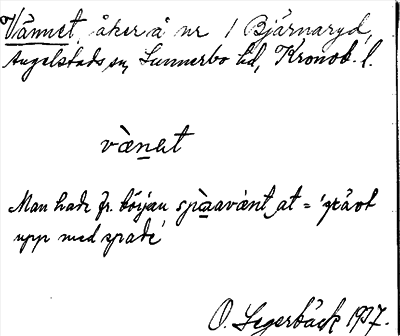 Vännet, åker å nr 1 Bjärnaryd,
Angelstads sn, Sunnerbo hd, Kronob. l.
vænət
Man hade fr. början spàavànt at = 'grävt
upp med spade'
O. Segerbäck 1927.